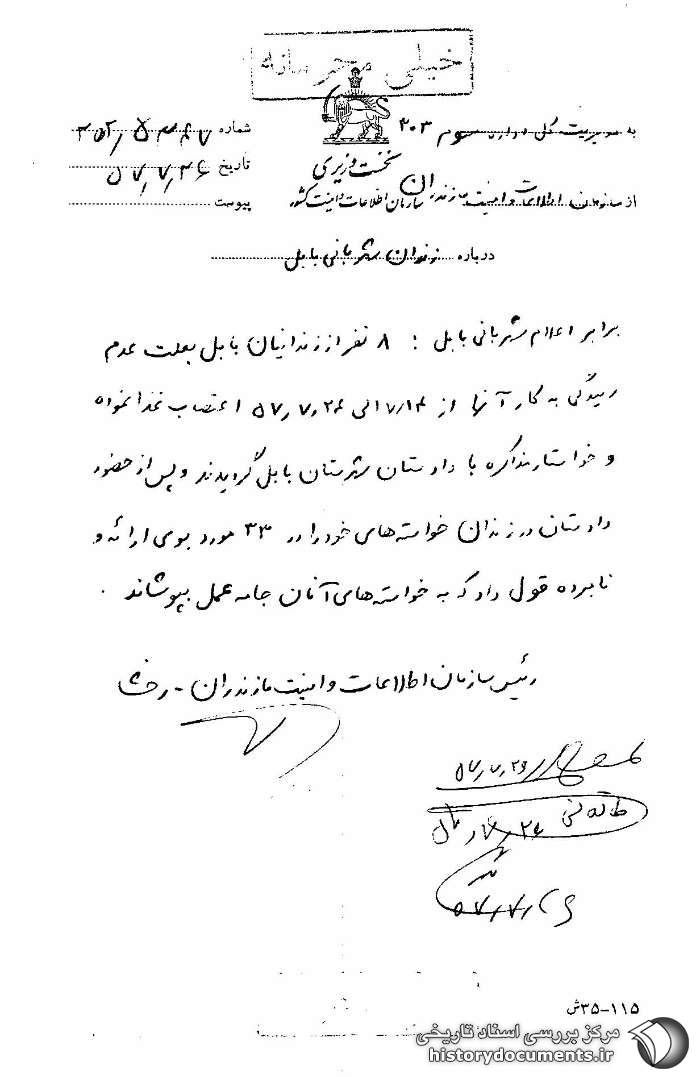 خیلی محرمانه
به مدیریت کل اداره سوم ۳۰۳
نخست وزیری
شماره
تاریخ ۵۷٫۷٫۲۶
از سازمان اطلاعات و امنیت مازندران
سازمان اطلاعات و امنیت کشور
پیوست
درباره زندان شهربانی بابل
برابر اعلام شهربانی بابل : ۸ نفر از زندانیان بابل بعلت عدم
رسیدگی به کار آنها از ۷٫۱۴ الی ۵۷٫۷٫۲۴ اعتصاب غذا نموده
و خواستار مذاکره با دادستان شهرستان بابل گردیدند و پس از حضور
دادستان در زندان خواسته های خود را در ۳۳ مورد بوی ارائه و
نامبرده قول داد که به خواسته های آنان جامه عمل بپوشاند .
رئیس سازمان اطلاعات و امنیت مازندران - رخشا
۵۷٫۷٫۲۶
طالقانی
۵۷٫۷٫۲۶
۳۵-۱۱۵ش
مرکز بررسی اسناد تاریخی
historydocuments.ir